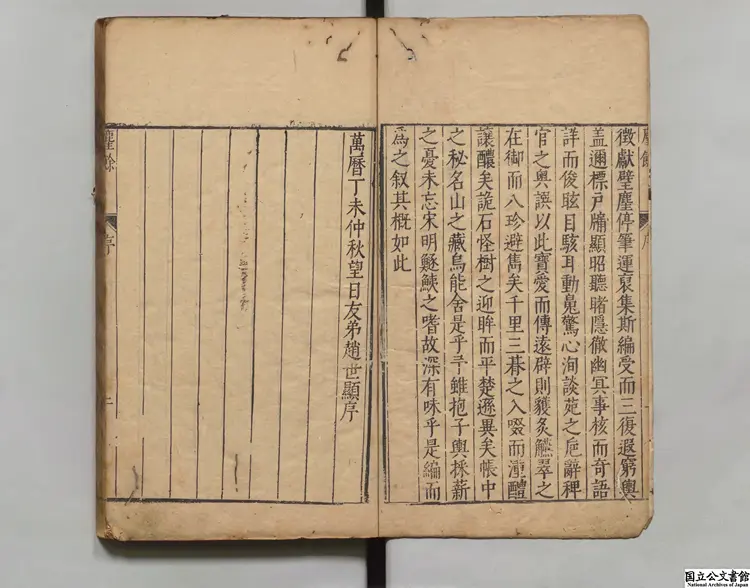 麈餘
序
徵獻璧塵停筆運裒集斯編受而三復遐窮輿
盖邇標戸牖顯昭聽睹隱徹幽冥事核而奇語
詳而俊眩目駭耳動魄驚心洵談苑之巵辭稗
官之輿誤以此寶愛而傳遠辟則豹炙觿翠之
在御而八珍避雋矣千里三暮之入啜而湩醴
讓醲矣詭石怪樹之迎眸而平楚遜異矣帳中
之秘名山之藏烏能舍是乎予雖抱子輿採薪
之憂未忘宋明鱁鮧之嗜故深有味乎是編而
為之叙其概如此
萬曆丁未仲秋望日友弟趙世顯序
麈餘
序
二
国立公文書館
National Archives of Japan